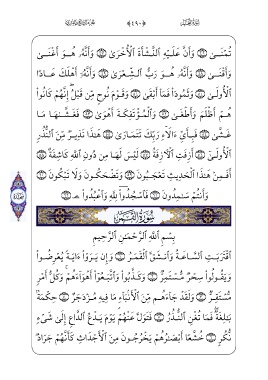 ﴿٤٩٠﴾
تُمْنَىٰ ۝ وَأَنَّ عَلَيْهِ ٱلنَّشْأَةَ ٱلْأُخْرَىٰ ۝ وَأَنَّهُۥ هُوَ أَغْنَىٰ
وَأَقْنَىٰ ۝ وَأَنَّهُۥ هُوَ رَبُّ ٱلشِّعْرَىٰ ۝ وَأَنَّهُۥٓ أَهْلَكَ عَادًا
ٱلْأُولَىٰ ۝ وَثَمُودَا۟ فَمَآ أَبْقَىٰ ۝ وَقَوْمَ نُوحٍ مِّن قَبْلُ إِنَّهُمْ كَانُوا۟
هُمْ أَظْلَمَ وَأَطْغَىٰ ۝ وَٱلْمُؤْتَفِكَةَ أَهْوَىٰ ۝ فَغَشَّىٰهَا مَا
غَشَّىٰ ۝ فَبِأَىِّ ءَالَآءِ رَبِّكَ تَتَمَارَىٰ ۝ هَٰذَا نَذِيرٌ مِّنَ ٱلنُّذُرِ
ٱلْأُولَىٰٓ ۝ أَزِفَتِ ٱلْءَازِفَةُ ۝ لَيْسَ لَهَا مِن دُونِ ٱللَّهِ كَاشِفَةٌ ۝
أَفَمِنْ هَٰذَا ٱلْحَدِيثِ تَعْجَبُونَ ۝ وَتَضْحَكُونَ وَلَا تَبْكُونَ ۝
وَأَنتُمْ سَٰمِدُونَ ۝ فَٱسْجُدُوا۟ لِلَّهِ وَٱعْبُدُوا۟ ۝
سُورَةُ ٱلْقَمَرِ
بِسْمِ ٱللَّهِ ٱلرَّحْمَٰنِ ٱلرَّحِيمِ
ٱقْتَرَبَتِ ٱلسَّاعَةُ وَٱنشَقَّ ٱلْقَمَرُ ۝ وَإِن يَرَوْا۟ ءَايَةً يُعْرِضُوا۟
وَيَقُولُوا۟ سِحْرٌ مُّسْتَمِرٌّ ۝ وَكَذَّبُوا۟ وَٱتَّبَعُوٓا۟ أَهْوَآءَهُمْ وَكُلُّ أَمْرٍ
مُّسْتَقِرٌّ ۝ وَلَقَدْ جَآءَهُم مِّنَ ٱلْأَنۢبَآءِ مَا فِيهِ مُزْدَجَرٌ ۝ حِكْمَةٌۢ
بَٰلِغَةٌ فَمَا تُغْنِ ٱلنُّذُرُ ۝ فَتَوَلَّ عَنْهُمْ يَوْمَ يَدْعُ ٱلدَّاعِ إِلَىٰ شَىْءٍ
نُّكُرٍ ۝ خُشَّعًا أَبْصَٰرُهُمْ يَخْرُجُونَ مِنَ ٱلْأَجْدَاثِ كَأَنَّهُمْ جَرَادٌ